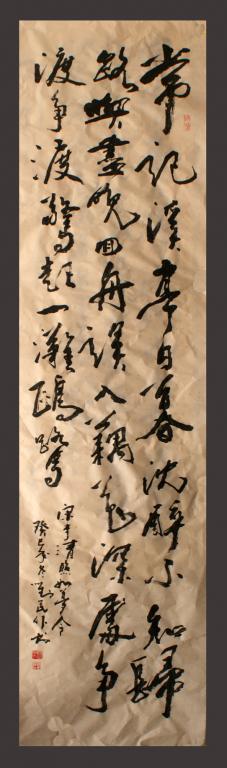 常記溪亭日暮沈醉不知歸
路興盡晚回舟誤入藕花深處爭
渡爭渡驚起一灘鷗鷺
宋李清照如夢令
癸巳年冬